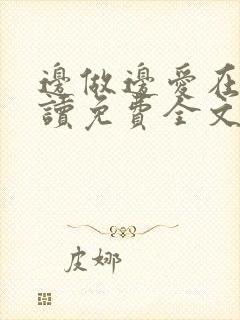 邊做邊愛在
讀免費全文
皮娜